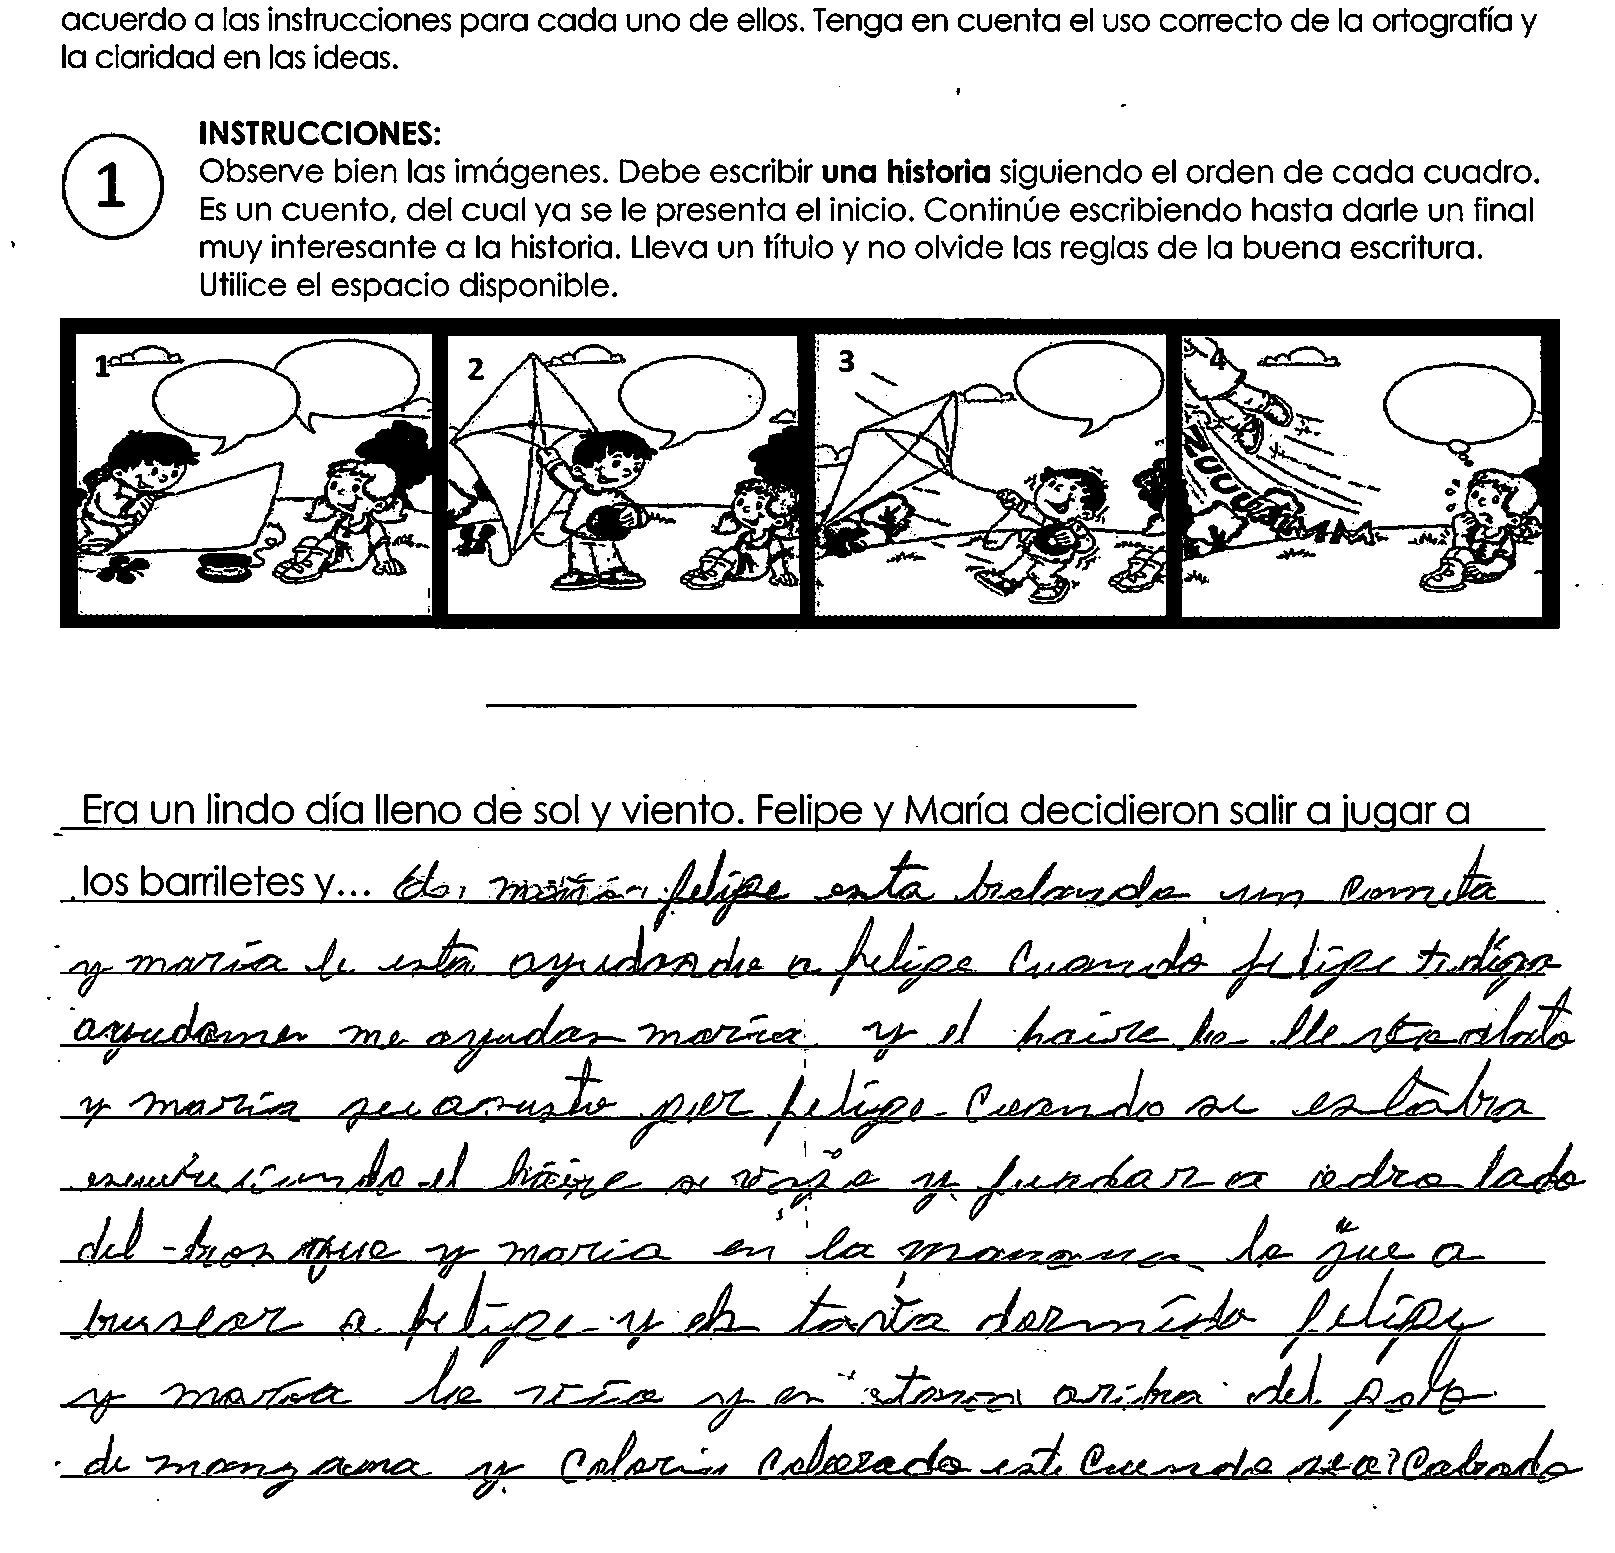 acuerdo a las instrucciones para cada uno de ellos. Tenga en cuenta el uso correcto de la ortografía y
la claridad en las ideas.
1
INSTRUCCIONES:
Observe bien las imágenes. Debe escribir una historia siguiendo el orden de cada cuadro.
Es un cuento, del cual ya se le presenta el inicio. Continúe escribiendo hasta darle un final
muy interesante a la historia. Lleva un título y no olvide las reglas de la buena escritura.
Utilice el espacio disponible.
1 2 3 4
ZUUUUMMM
Era un lindo día lleno de sol y viento. Felipe y María decidieron salir a jugar a
los barriletes y... felipe esta bolando un comita
y maría le esta ayudando a felipe cuando felipe
ayudame me ayudas maría y el haire lo alato
y maría se asusto por felipe cuando se estaba
el haire a odro lado
del bosque y maria en la manana lo fue a
buscar a felipe y es taba dormido felipe
y maria lo vio y en ariba del palo
de manzana y colorin colorado este cuendo sea cabado